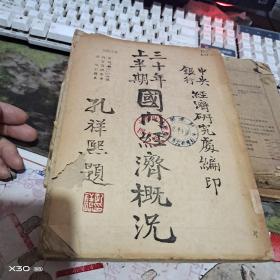 中央
銀行
經濟研究處編印
三十年
上半期
國內經濟概況
孔祥熙題
X30